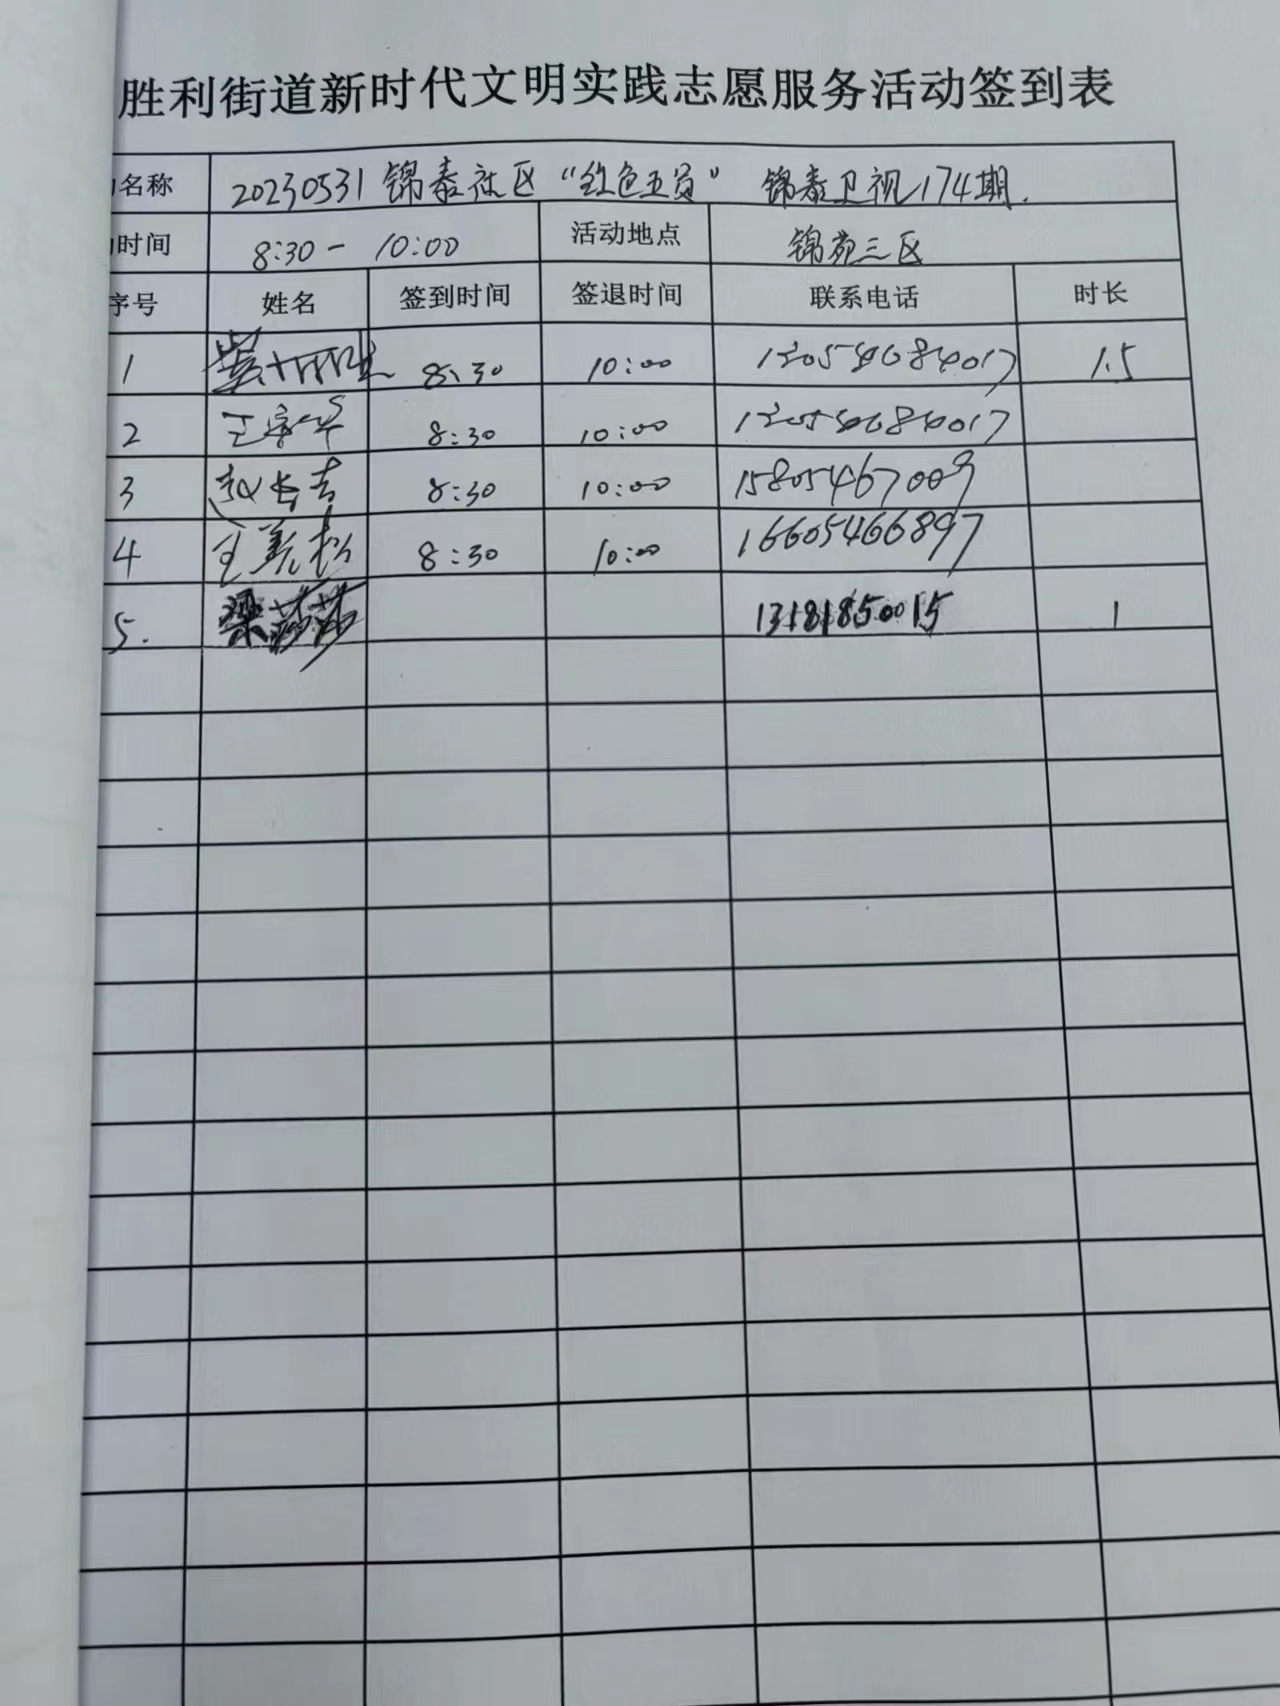 胜利街道新时代文明实践志愿服务活动签到表
名称 20230531 锦泰社区“红色五员” 锦泰卫视174期.
时间 8:30 - 10:00 活动地点 锦苑三区
序号 姓名 签到时间 签退时间 联系电话 时长
1 8:30 10:00 1.5
2 8:30 10:00
3 赵长吉 8:30 10:00 15805467009
4 王美松 8:30 10:00 16605466897
5. 梁莎莎 1